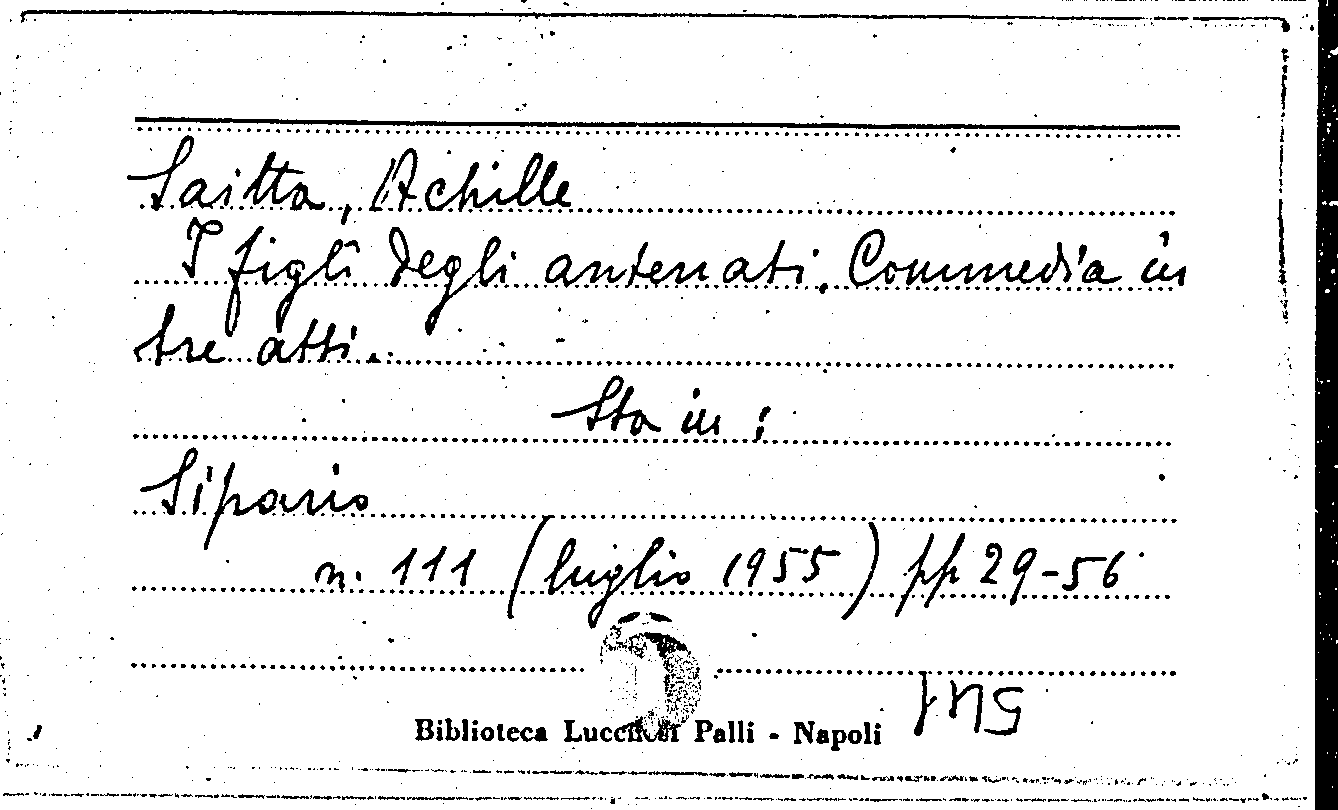 Saitta, Achille
I figli degli antenati. Commedia in
tre atti.
Sta in:
Sipario
n. 111 (luglio 1955) pp 29-56
Biblioteca Lucchesi Palli - Napoli